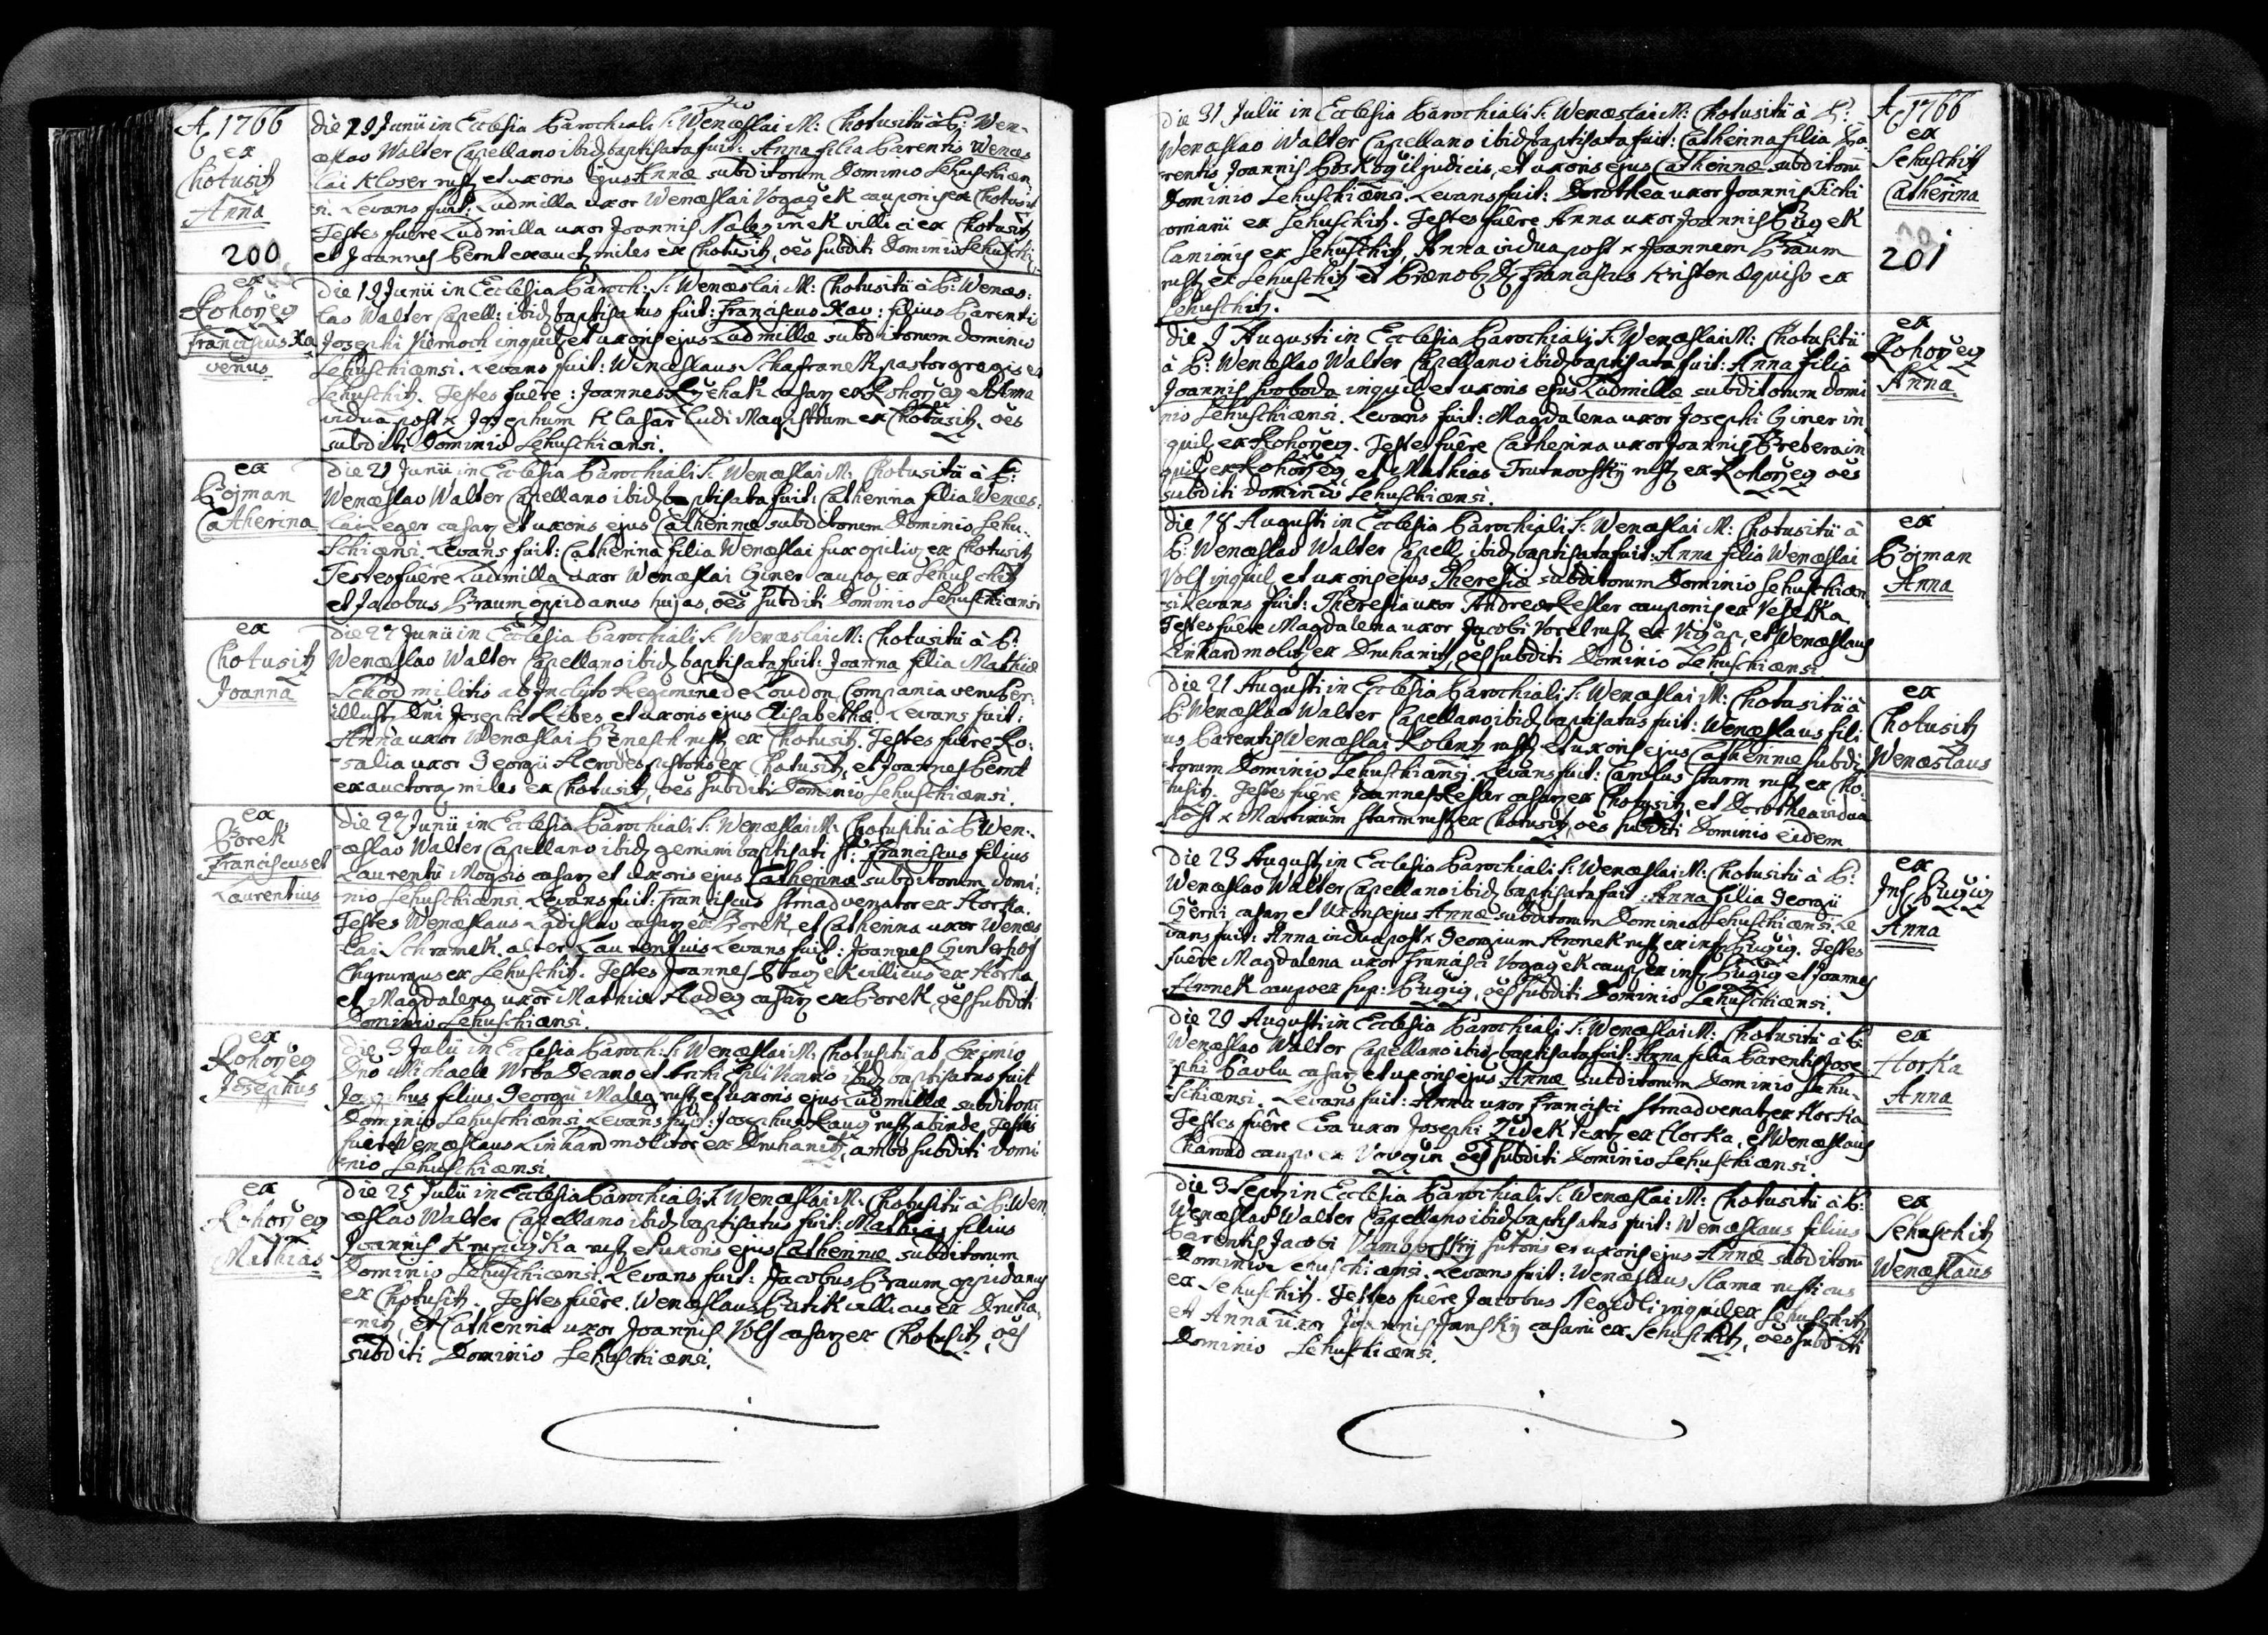 A 1766
ex
Chotusitz
Anna
200
die 19 Junii in Ecclesia Parochiali S: Wenceslai M: Chotusitii à P: Wen-
ceslao Walter Capellano ibid baptisata fuit: Anna filia Parentis Wences
lai Kloser rust et uxoris ejus Annæ subditorum Dominio Sehuschicen
si. Levans fuit: Ludmilla uxor Wenceslai Vogaček cauponis ex Chotusitz
Testes fuêre Ludmilla uxor Joannis villici ex Chotusitz
et Joannes Bernt exauct miles ex Chotusitz, oēs subditi Dominio Sehuschi
ex
Rohozeg
Franciscus Xa
verius
Die 19 Junii in Ecclesia Paroch: S: Wenceslai M: Chotusitii à P: Wences:
lao Walter Capell: ibid baptisatus fuit: Franciscus Xav: filius Parentis
Josephi inquil et uxoris ejus Ludmillæ subditorum Dominio
Sehuschicensi. Levans fuit: Wenceslaus Schafranek pastor gregis ex
Sehuschitz. Testes fuêre: Joannes casar ex Rohozeg et Anna
vidua post x Josephum Klasar Ludi Magistrum ex Chotusitz. oēs
subditi Dominio Sehuschicensi.
ex
Bojman
Catherina
Die 21 Junii in Ecclesia Parochiali S: Wenceslai M: Chotusitii à P:
Wenceslao Walter Capellano ibid baptisata fuit: Catherina filia Wences:
lai Leger casar et uxoris ejus Catherinæ subditorum Dominio Sehu:
schicensi. Levans fuit: Catherina filia Wenceslai Fux opilio ex Chotusitz
Testes fuêre Ludmilla uxor Wenceslai Giner caupo ex Sehuschitz
et Jacobus Braum oppidanus hujas, oēs subditi Dominio Sehuschicensi
ex
Chotusitz
Joanna
Die 27 Junii in Ecclesia Parochiali S: Wenceslai M: Chotusitii à P:
Wenceslao Walter Capellano ibid baptisata fuit: Joanna filia Mathiæ
Schöd militis ab Inclyto Regimine de Loudon, Compania
illust Dni Josephi Ribes et uxoris ejus Elisabethæ. Levans fuit:
Anna uxor Wenceslai Benesch rust ex Chotusitz. Testes fuêre Ro:
salia uxor Georgii Herodes sutoris ex Chotusitz, et Joannes Bernt
exauctorā miles ex Chotusitz, oēs subditi Dominio Sehuschicensi.
ex
Borek
Franciscus et
Laurentius
Die 27 Junii in Ecclesia Parochiali S: Wenceslai M: Chotusitii à P: Wen:
ceslao Walter Capellano ibid gemini baptisati st: Franciscus filius
Laurentii Moysis casar et uxoris ejus Catherinæ subditorum domi:
nio Sehuschicensi. Levans fuit: Franciscus Strnad venator ex Horka.
Testes Wenceslaus Ladislav casar ex Borek, et Catherina uxor Wences
lai Schramek. alter Laurentius Levans fuit: Joannes Ginterhof
Chyrurgus ex Sehuschitz. Testes Joannes villicus ex Horka
et Magdalena uxor Mathiæ Hadeg casar ex Borek, oēs subditi
Dominio Sehuschicensi.
ex
Rohozeg
Josephus
Die 3 Julii in Ecclesia Paroch: S: Wenceslai M: Chotusitii ab Eximio
Dno Michaele Wrba Decano et ibid baptisatus fuit
Josephus filius Georgii Maleg rust et uxoris ejus Ludmillæ subditorū
Dominio Sehuschicensi Levans fuit: Josephus rust abinde, Testes
fuêre Wenceslaus Linhard molitor ex Druhanitz, ambo subditi Domi
nio Sehuschicensi.
ex
Rohozeg
Mathias
Die 25 Julii in Ecclesia Parochiali S: Wenceslai M: Chotusitii à P: Wen
ceslao Walter Capellano ibid baptisatus fuit: Mathias filius
Joannis Krupička rust et uxoris ejus Catherinæ subditorum
Dominio Sehuschicensi. Levans fuit: Jacobus Braum oppidanus
ex Chotusitz. Testes fuêre Wenceslaus Butik villicus ex Druha
nitz, et Catherina uxor Joannis Vols casar ex Chotusitz, oēs
subditi Dominio Sehuschicensi.
A 1766
ex
Sehuschitz
Catherina
201
die 31 Julii in Ecclesia Parochiali S: Wenceslai M: Chotusitii à P:
Wenceslao Walter Capellano ibid baptisata fuit: Catherina filia Pa
rentis Joannis judicis, et uxoris ejus Catherinæ subditorū
Dominio Sehuschicensi. Levans fuit: Dorothea uxor Joannis Tichi
ex Sehuschitz. Testes fuêre Anna uxor Joannis
lanionis ex Sehuschitz, Anna vidua post x Joannem Braum
rust ex Sehuschitz et Franciscus Kristen æquiso ex
Sehuschitz.
ex
Rohozeg
Anna
die 9 Augusti in Ecclesia Parochiali S: Wenceslai M: Chotusitii
à P: Wenceslao Walter Capellano ibid baptisata fuit: Anna filia
Joannis Swoboda inquil et uxoris ejus Ludmillæ subditorum domi
nio Sehuschicensi. Levans fuit: Magdalena uxor Josephi Giner in
quil ex Rohozeg. Testes fuêre Catherina uxor Joannis Brebera in
quil ex Rohozeg et Mathias Trutnovsky rust ex Rohozeg oēs
subditi dominio Sehuschicensi.
ex
Bojman
Anna
die 18 Augusti in Ecclesia Parochiali S: Wenceslai M: Chotusitii à
P: Wenceslao Walter Capell ibid baptisata fuit: Anna filia Wenceslai
Vols inquil et uxoris ejus Theresiæ subditorum Dominio Sehuschicen
si Levans fuit: Theresia uxor Andreæ Kesler cauponis ex Veselka
Testes fuêre Magdalena uxor Jacobi Vorel rust ex et Wenceslaus
Linhard molit ex Druhanitz, oēs subditi Dominio Sehuschicensi.
ex
Chotusitz
Wenceslaus
Die 21 Augusti in Ecclesia Parochiali S: Wenceslai M: Chotusitii à
P: Wenceslao Walter Capellano ibid baptisatus fuit: Wenceslaus fili
us Parentis Wenceslai Kolentz rust et uxoris ejus Catherinæ subdi
torum Dominio Sehuschicensi. Levans fuit: Carolus Sturm rust ex Cho:
tusitz. Testes fuêre Joannes Kesler casar ex Chotusitz et Dorothea vidua
post x Martinum Sturm rust ex Chotusitz, oēs subditi Dominio eidem
ex
Inf Bugig
Anna
Die 23 August in Ecclesia Parochiali S: Wenceslai M: Chotusitii à P:
Wenceslao Walter Capellano ibid baptisata fuit: Anna filia Georgii
Černi casar et Uxoris ejus Annæ subditorum Dominio Sehuschicensi. Le
vans fuit: Anna vidua post x Georgium Hronek rust ex inf: Bugig. Testes
fuêre Magdalena uxor Francisci Vogaček caup ex inf: Bugig et Joannes
Hronek caupo ex sup: Bugig, oēs subditi Dominio Sehuschicensi.
ex
Horka
Anna
Die 29 Augusti in Ecclesia Parochiali S: Wenceslai M: Chotusitii à P:
Wenceslao Walter Capellano ibid baptisata fuit: Anna filia Parentis Jose
phi Pavlu casar et uxoris ejus Annæ subditorum Dominio Sehu-
schicensi. Levans fuit: Anna uxor Francisci Strnad venat ex Horka
Testes fuêre Eva uxor Josephi Zidek text ex Horka, et Wenceslaus
Charvad caupo ex oēs subditi Dominio Sehuschicensi.
ex
Sehuschitz
Wenceslaus
Die 3 Sept in Ecclesia Parochiali S: Wenceslai M: Chotusitii à P:
Wenceslao Walter Capellano ibid baptisatus fuit: Wenceslaus filius
Parentis Jacobi Vamborsky sutoris et uxoris ejus Annæ subditorū
Dominio Sehuschicensi. Levans fuit: Wenceslaus Slama rusticus
ex Sehuschitz. Testes fuêre Jacobus Negedli inquil ex Sehuschitz
et Anna uxor Joannis Jansky casarii ex Sehuschitz, oēs subditi
Dominio Sehuschicensi.